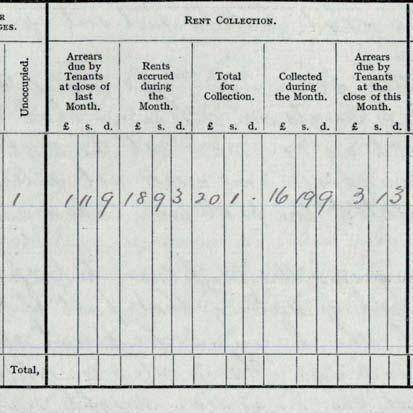 R
GES.
Unoccupied.
RENT COLLECTION.
Arrears due by Tenants at close of last Month.
Rents accrued during the Month.
Total for Collection.
Collected during the Month.
Arrears due by Tenants at the close of this Month
£ s. d. £ s. d. £ s. d. £ s. d. £ s. d.
1 1 11 9 18 9 3 20 1 . 16 19 9 3 1 3
Total,